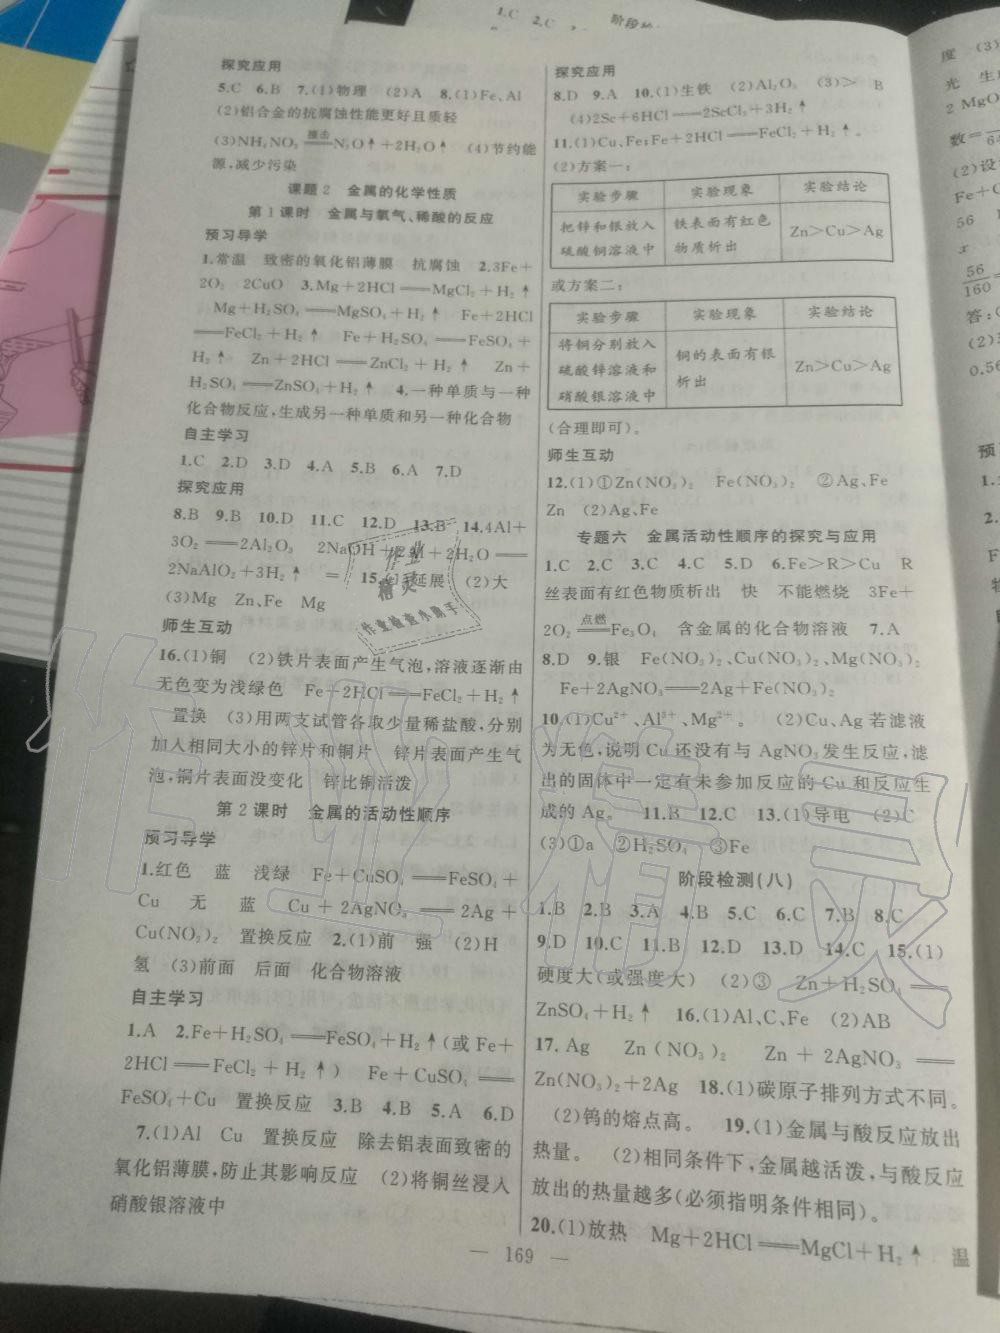 探究应用
5.C 6.B 7.(1)物理 (2)A 8.(1)Fe、Al
(2)铝合金的抗腐蚀性能更好且质轻
(3)NH₄NO₃ 撞击 N₂O↑+2H₂O↑ (4)节约能
源,减少污染
课题2 金属的化学性质
第1课时 金属与氧气、稀酸的反应
预习导学
1.常温 致密的氧化铝薄膜 抗腐蚀 2.3Fe+
2O₂ 2CuO 3.Mg+2HCl══MgCl₂+H₂↑
Mg+H₂SO₄══MgSO₄+H₂↑ Fe+2HCl
══FeCl₂+H₂↑ Fe+H₂SO₄══FeSO₄+
H₂↑ Zn+2HCl══ZnCl₂+H₂↑ Zn+
H₂SO₄══ZnSO₄+H₂↑ 4.一种单质与一种
化合物反应,生成另一种单质和另一种化合物
自主学习
1.C 2.D 3.D 4.A 5.B 6.A 7.D
探究应用
8.B 9.B 10.D 11.C 12.D 13.B 14.4Al+
3O₂══2Al₂O₃ 2NaOH+2Al+2H₂O══
2NaAlO₂+3H₂↑ = 15.(1)延展 (2)大
(3)Mg Zn、Fe Mg
师生互动
16.(1)铜 (2)铁片表面产生气泡,溶液逐渐由
无色变为浅绿色 Fe+2HCl══FeCl₂+H₂↑
置换 (3)用两支试管各取少量稀盐酸,分别
加入相同大小的锌片和铜片 锌片表面产生气
泡,铜片表面没变化 锌比铜活泼
第2课时 金属的活动性顺序
预习导学
1.红色 蓝 浅绿 Fe+CuSO₄══FeSO₄+
Cu 无 蓝 Cu+2AgNO₃══2Ag+
Cu(NO₃)₂ 置换反应 2.(1)前 强 (2)H
氢 (3)前面 后面 化合物溶液
自主学习
1.A 2.Fe+H₂SO₄══FeSO₄+H₂↑(或Fe+
2HCl══FeCl₂+H₂↑) Fe+CuSO₄══
FeSO₄+Cu 置换反应 3.B 4.B 5.A 6.D
7.(1)Al Cu 置换反应 除去铝表面致密的
氧化铝薄膜,防止其影响反应 (2)将铜丝浸入
硝酸银溶液中
探究应用
8.D 9.A 10.(1)生铁 (2)Al₂O₃ (3)> B
(4)2Sc+6HCl══2ScCl₃+3H₂↑
11.(1)Cu、Fe;Fe+2HCl══FeCl₂+H₂↑。
(2)方案一:
实验步骤 实验现象 实验结论
把锌和银放入 铁表面有红色 Zn>Cu>Ag
硫酸铜溶液中 物质析出
或方案二:
实验步骤 实验现象 实验结论
将铜分别放入 铜的表面有银 Zn>Cu>Ag
硫酸锌溶液和 析出
硝酸银溶液中
(合理即可)。
师生互动
12.(1)①Zn(NO₃)₂ Fe(NO₃)₂ ②Ag、Fe
Zn (2)Ag、Fe
专题六 金属活动性顺序的探究与应用
1.C 2.C 3.C 4.C 5.D 6.Fe>R>Cu R
丝表面有红色物质析出 快 不能燃烧 3Fe+
2O₂ 点燃 Fe₃O₄ 含金属的化合物溶液 7.A
8.D 9.银 Fe(NO₃)₂、Cu(NO₃)₂、Mg(NO₃)₂
Fe+2AgNO₃══2Ag+Fe(NO₃)₂
10.(1)Cu²⁺、Al³⁺、Mg²⁺。 (2)Cu、Ag 若滤液
为无色,说明Cu还没有与AgNO₃发生反应,滤
出的固体中一定有未参加反应的Cu和反应生
成的Ag。 11.B 12.C 13.(1)导电 (2)C
(3)①a ②H₂SO₄ ③Fe
阶段检测(八)
1.B 2.B 3.A 4.B 5.C 6.C 7.B 8.C
9.D 10.C 11.B 12.D 13.D 14.C 15.(1)
硬度大(或强度大) (2)③ Zn+H₂SO₄══
ZnSO₄+H₂↑ 16.(1)Al、C、Fe (2)AB
17.Ag Zn(NO₃)₂ Zn+2AgNO₃══
Zn(NO₃)₂+2Ag 18.(1)碳原子排列方式不同。
(2)钨的熔点高。 19.(1)金属与酸反应放出
热量。 (2)相同条件下,金属越活泼,与酸反应
放出的热量越多(必须指明条件相同)。
20.(1)放热 Mg+2HCl══MgCl+H₂↑ 温
— 169 —
作业
精灵
作业检查小助手
作业精灵
1.C 2.C
阶段
度 (3)
光 生
2 MgO
数=
64
(2)设
Fe+C
56
x
56
160
答:
(2)
0.56
预
1.
2.
F